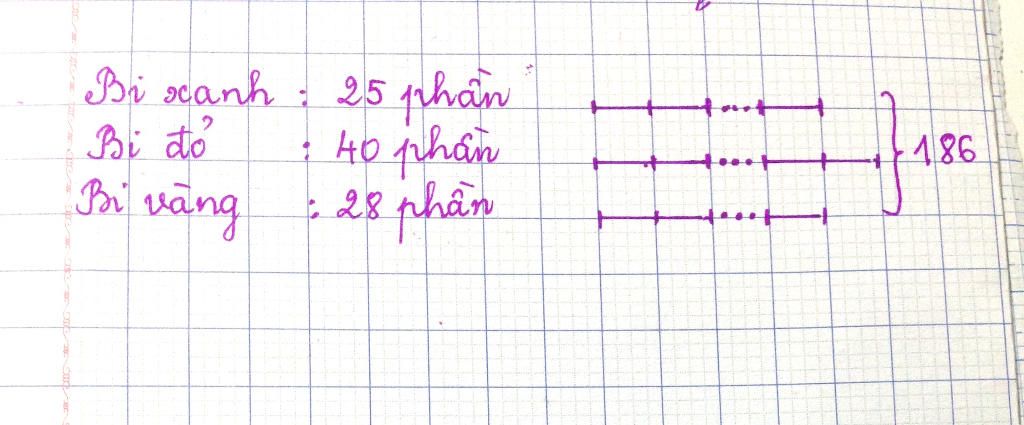 Bi xanh : 25 phần
Bi đỏ : 40 phần
Bi vàng : 28 phần
186